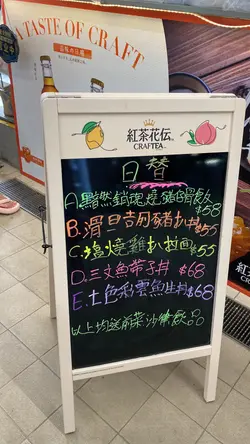 A TASTE OF CRAFT
紅茶花伝
CRAFTEA
日替
A.黯然銷魂燒豬自胃飯 $58
B.滑旦吉列豬扒丼 $55
C.塩燒雞扒拌面 $55
D.三文魚帶子丼 $68
E.七色彩雲魚生丼 $68
以上均送前菜沙律飲品